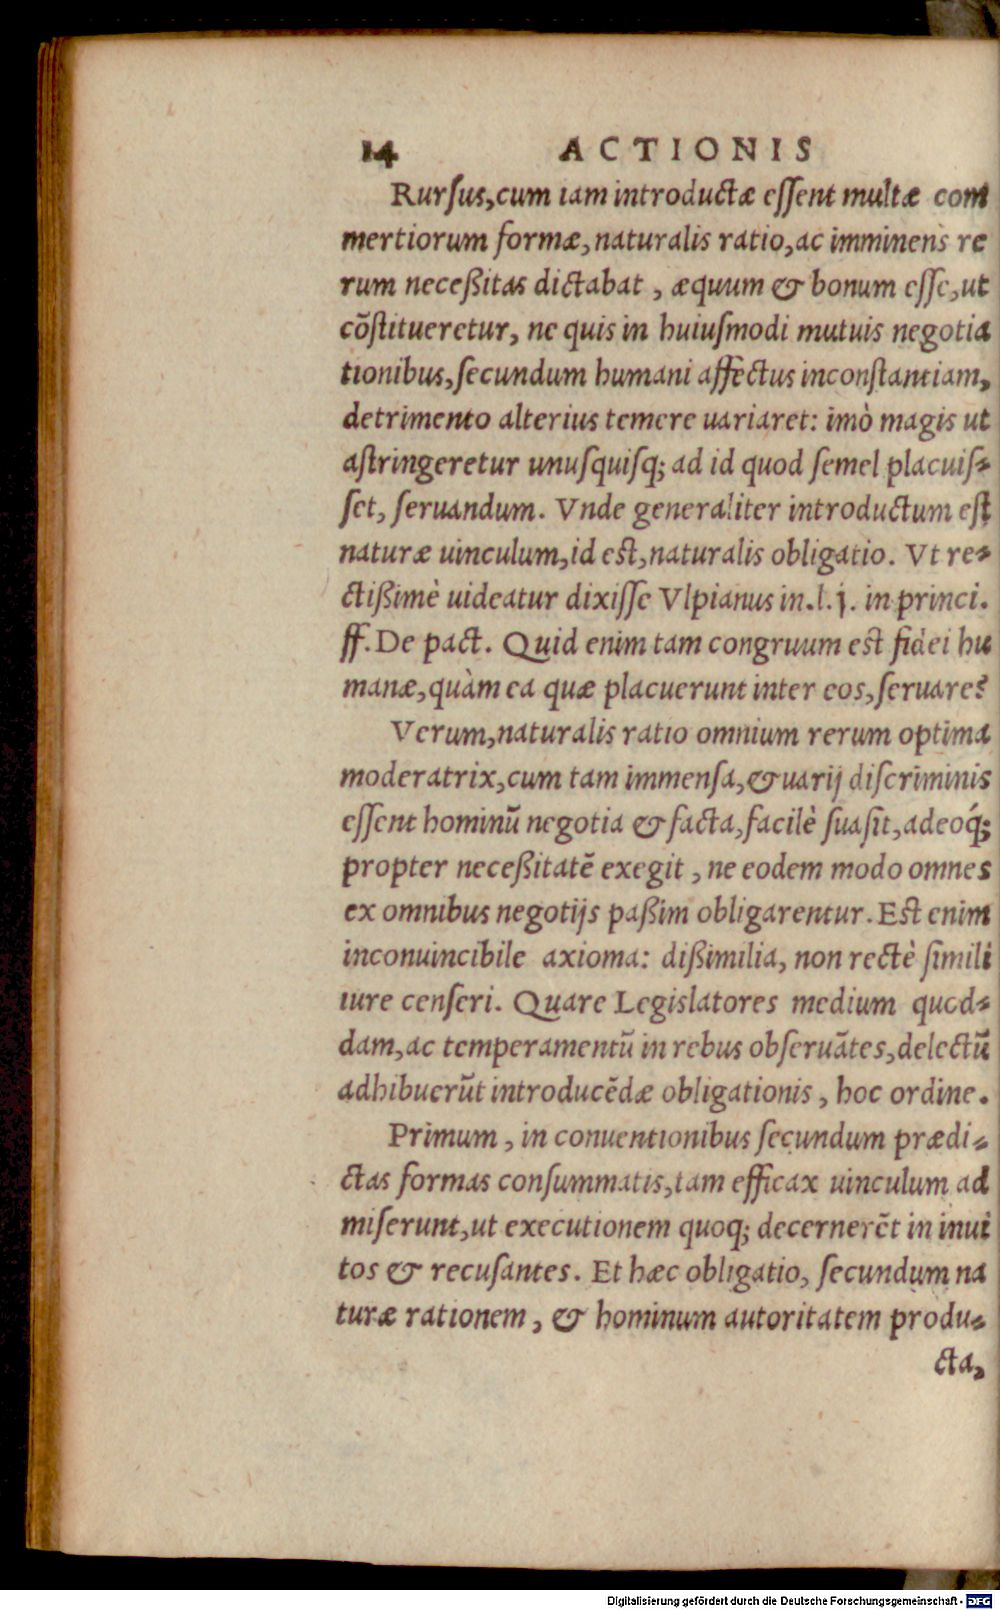 14 ACTIONIS
Rurſus, cum iam introductæ eſſent multæ com
mertiorum formæ, naturalis ratio, ac imminens re
rum neceßitas dictabat, æquum & bonum eſſe, ut
cōſtitueretur, ne quis in huiuſmodi mutuis negotia
tionibus, ſecundum humani affectus inconſtantiam,
detrimento alterius temere uariaret: imò magis ut
aſtringeretur unuſquiſq; ad id quod ſemel placuiſ-
ſet, ſeruandum. Vnde generaliter introductum eſt
naturæ uinculum, id est, naturalis obligatio. Vt re-
ctißimè uideatur dixiſſe Vlpianus in.l.j. in princi.
ff. De pact. Quid enim tam congruum est fidei hu
manæ, quàm ea quæ placuerunt inter eos, ſeruare?
Verum, naturalis ratio omnium rerum optima
moderatrix, cum tam immenſa, & uarij diſcriminis
eſſent hominū negotia & facta, facilè ſuaſit, adeoq́;
propter neceßitatē exegit, ne eodem modo omnes
ex omnibus negotijs paßim obligarentur. Est enim
inconuincibile axioma: dißimilia, non rectè ſimili
iure cenſeri. Quare Legislatores medium quod-
dam, ac temperamentū in rebus obſeruātes, delectū
adhibuerūt introducēdæ obligationis, hoc ordine.
Primum, in conuentionibus ſecundum prædi-
ctas formas conſummatis, tam efficax uinculum ad
miſerunt, ut executionem quoq; decernerēt in inui
tos & recuſantes. Et hæc obligatio, ſecundum na
turæ rationem, & hominum autoritatem produ-
cta,
Digitalisierung gefördert durch die Deutsche Forschungsgemeinschaft - DFG